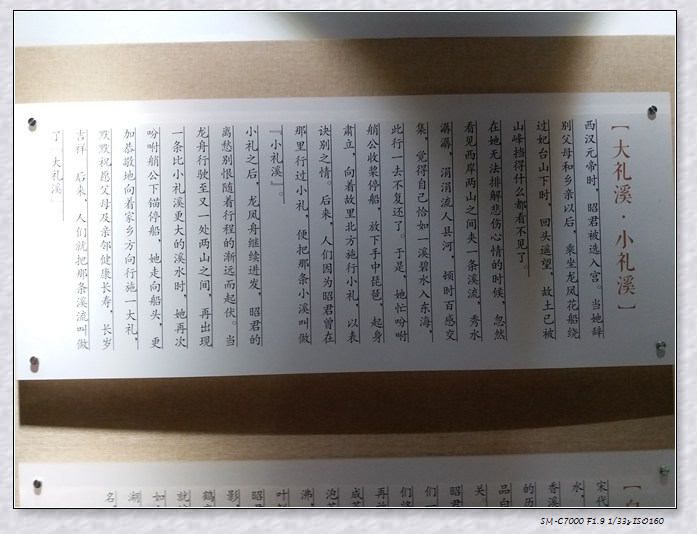 【大礼溪·小礼溪】
西汉元帝时，昭君被选入宫。当她辞
别父母和乡亲以后，乘坐龙凤花船绕
过妃台山下时，回头遥望，故土已被
山峰挡得什么都看不见了。
在她无法排解悲伤心情的时候，忽然
看见西岸两山之间夹一条溪流，秀水
潺潺，涓涓流入县河，顿时百感交
集，觉得自己恰如一溪碧水入东海，
此行一去不复还了。于是，她忙吩咐
艄公收桨停船，放下手中琵琶，起身
肃立，向着故里北方施行小礼，以表
诀别之情。后来，人们因为昭君曾在
那里行过小礼，便把那条小溪叫做
『小礼溪』。
小礼之后，龙凤舟继续进发，昭君的
离愁别恨随着行程的渐远而起伏。当
龙舟行驶至又一处两山之间，再出现
一条比小礼溪更大的溪水时，她再次
吩咐艄公下锚停船，她走向船头，更
加恭敬地向着家乡方向行施一大礼，
默默祝愿父母及亲邻健康长寿，长岁
吉祥。后来，人们就把那条溪流叫做
了『大礼溪』
宋代
水，
香溪
的历
品白
关。
昭君
们一
们将
再
成
泡
沸，
叶
昭
影，
鹤
就
如
湖
名，
SM-C7000 F1.9 1/33s ISO160